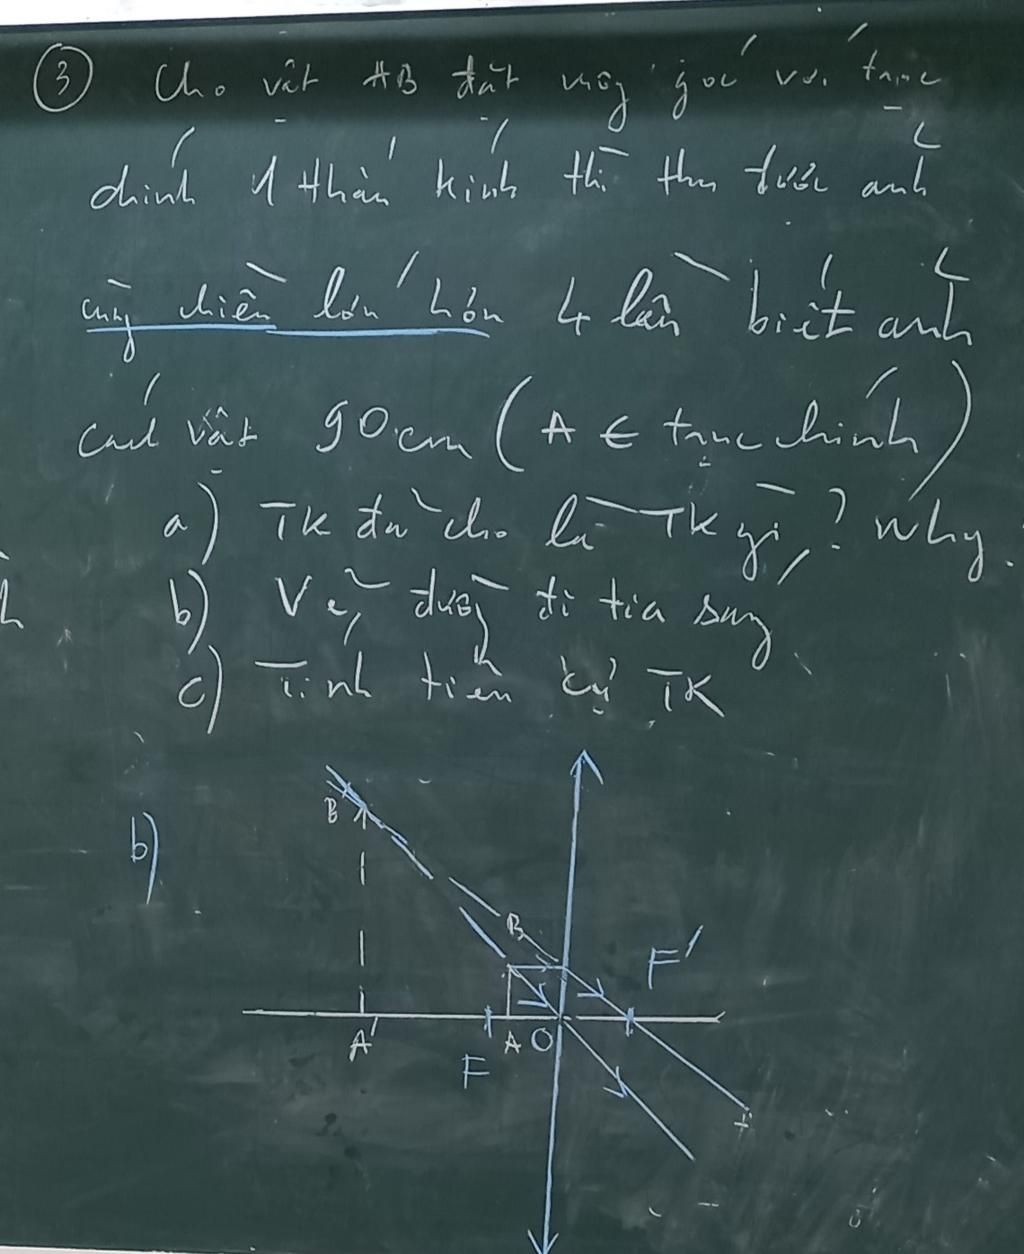 ③ Cho vật AB đặt vuông góc với trục
chính 1 thấu kính thì thu được ảnh
cùng chiều lớn hơn 4 lần biết ảnh
cách vật 90cm (A ∈ trục chính)
a) TK đã cho là TK gì? Why.
b) Vẽ đường đi tia sáng
c) Tính tiêu cự TK
b)
B'
B
F'
A'
F
A
O